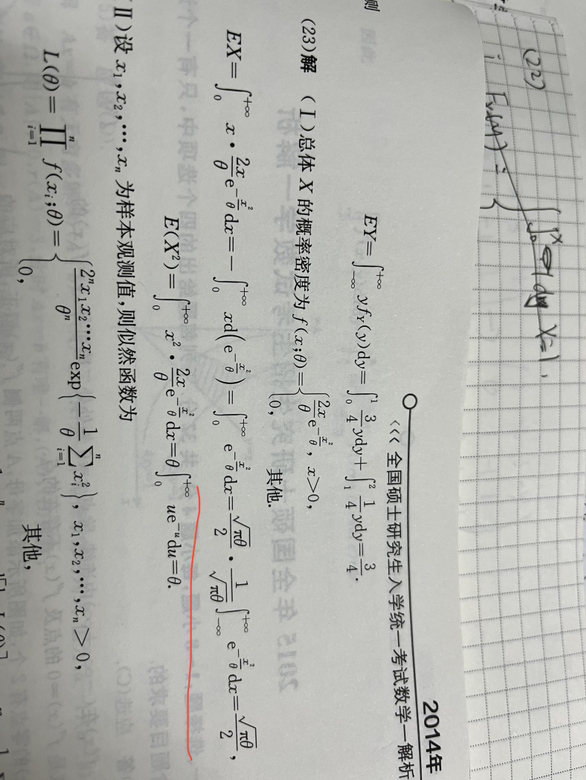 (22)
<<< 全国硕士研究生入学统一考试数学一解析 2014年
EY=∫_{-∞}^{+∞} yf_Y(y)dy=∫_0^1 \frac{3}{4}ydy+∫_1^2 \frac{1}{4}ydy=\frac{3}{4}.
则
(23)解 (Ⅰ)总体 X 的概率密度为 f(x;θ)={\frac{2x}{θ}e^{-\frac{x^2}{θ}}, x>0,
0, 其他.
EX=∫_0^{+∞} x·\frac{2x}{θ}e^{-\frac{x^2}{θ}}dx=-∫_0^{+∞} xd(e^{-\frac{x^2}{θ}})=∫_0^{+∞} e^{-\frac{x^2}{θ}}dx=\frac{\sqrt{πθ}}{2}·\frac{1}{\sqrt{πθ}}∫_{-∞}^{+∞} e^{-\frac{x^2}{θ}}dx=\frac{\sqrt{πθ}}{2},
E(X^2)=∫_0^{+∞} x^2·\frac{2x}{θ}e^{-\frac{x^2}{θ}}dx=θ∫_0^{+∞} ue^{-u}du=θ.
Ⅱ)设 x_1,x_2,…,x_n 为样本观测值,则似然函数为
L(θ)=∏_{i=1}^n f(x_i;θ)={\frac{2^n x_1x_2…x_n}{θ^n}exp{-\frac{1}{θ}∑_{i=1}^n x_i^2}, x_1,x_2,…,x_n>0,
0, 其他,